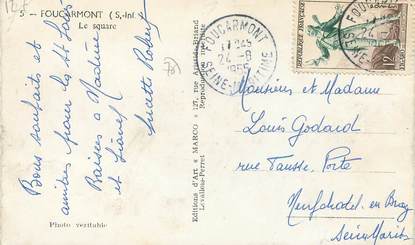 5 - FOUCARMONT (S.-Inf.)
Le square
Bons souhaits et
amitiés pour la St Louis
Baisers à Nadine
et Lionel
Lucette Robert
Photo véritable
Editions d'Art "MARCO" 127, rue Aristide-Briand
Levallois-Perret
Reproduction interdite
FOUCARMONT
17H45
24 - 8
1955
SEINE-MARITIME
REPUBLIQUE FRANÇAISE
12F
Monsieur et Madame
Louis Godard
rue Fausse Porte
Neufchatel en Bray
Seine Maritime